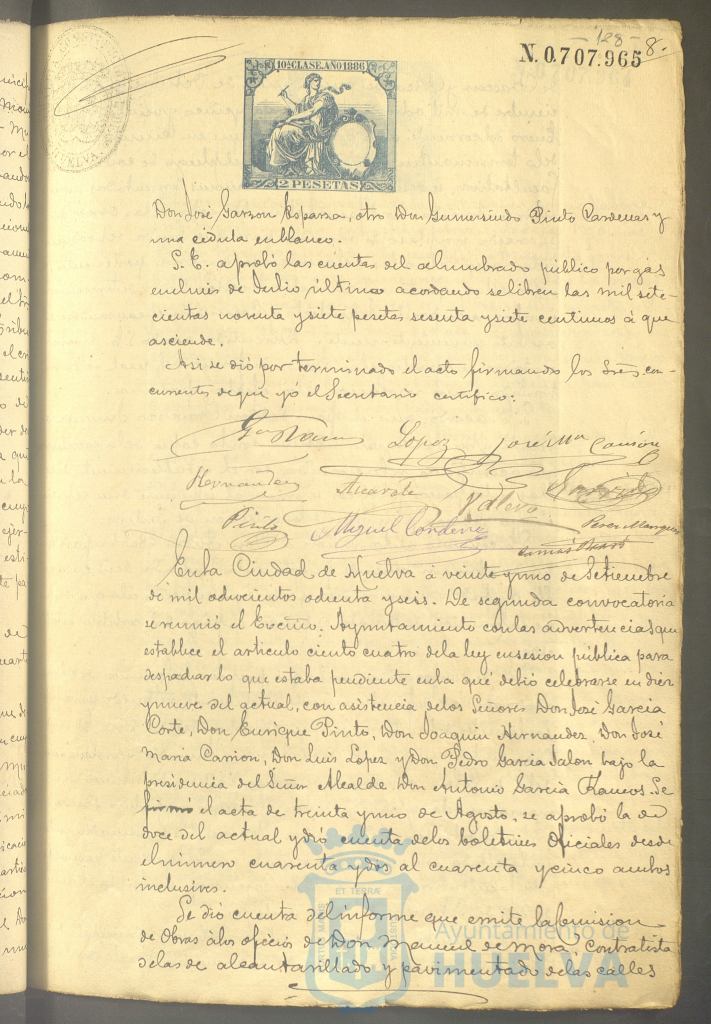 - 128 -
8.
N. 0.707.965
10ª CLASE. AÑO 1886
2 PESETAS
HUELVA
Don José Garzon Esparza, otro Don Gumersindo Pinto Cardenas y
una cédula en blanco.
S. E. aprobó las cuentas del alumbrado público por gas
en el mes de Julio último acordando se libren las mil sete-
cientas noventa y siete pesetas sesenta y siete centimos á que
asciende.
Asi se dió por terminado el acto firmando los Sres. con-
currentes de que yó el Secretario certifico:
Lopez José Mª Carrion
Hernandez Alcarate Garrido
Pinto Miguel Cordero Perez Marquez
En la Ciudad de Huelva á veinte y uno de Setiembre
de mil ochocientos ochenta y seis. De segunda convocatoria
se reunió el Excmo. Ayuntamiento con las advertencias que
establece el articulo ciento cuatro de la ley en sesion pública para
despachar lo que estaba pendiente en la que debió celebrarse en diez
y nueve del actual, con asistencia de los Señores Don José Garcia
Corte, Don Enrique Pinto, Don Joaquin Hernandez, Don José
Maria Carrion, Don Luis Lopez y Don Pedro Garcia Jalon bajo la
presidencia del Señor Alcalde Don Antonio Garcia Ramos. Se
firmó el acta de treinta y uno de Agosto, se aprobó la de
doce del actual y dió cuenta de los boletines Oficiales desde
el número cuarenta y dos al cuarenta y cinco ambos
inclusives.
Se dió cuenta del informe que emite la comision
de Obras á los oficios de Don Manuel de Mora, contratista
de las de alcantarillado y pavimentado de las calles
Ayuntamiento de
HUELVA